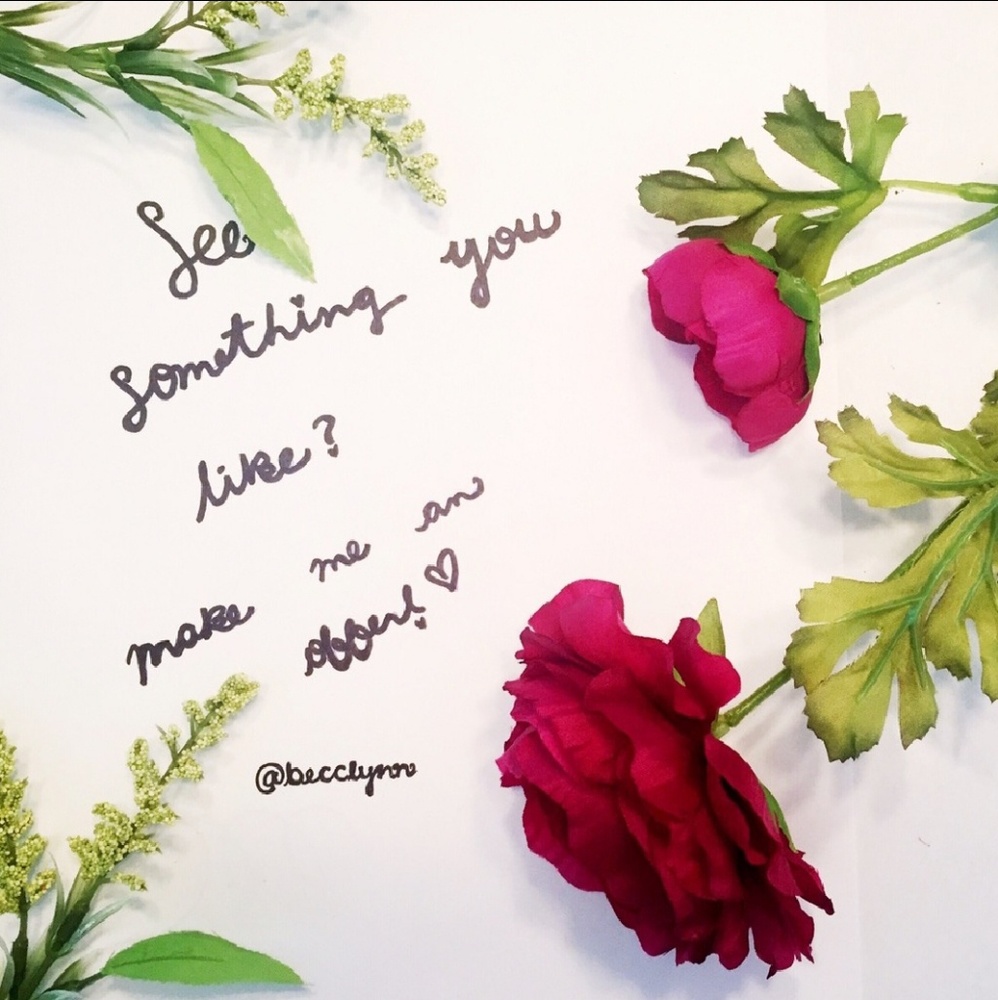 See
something you
like?
make me an
offer! ♡
@becclynn